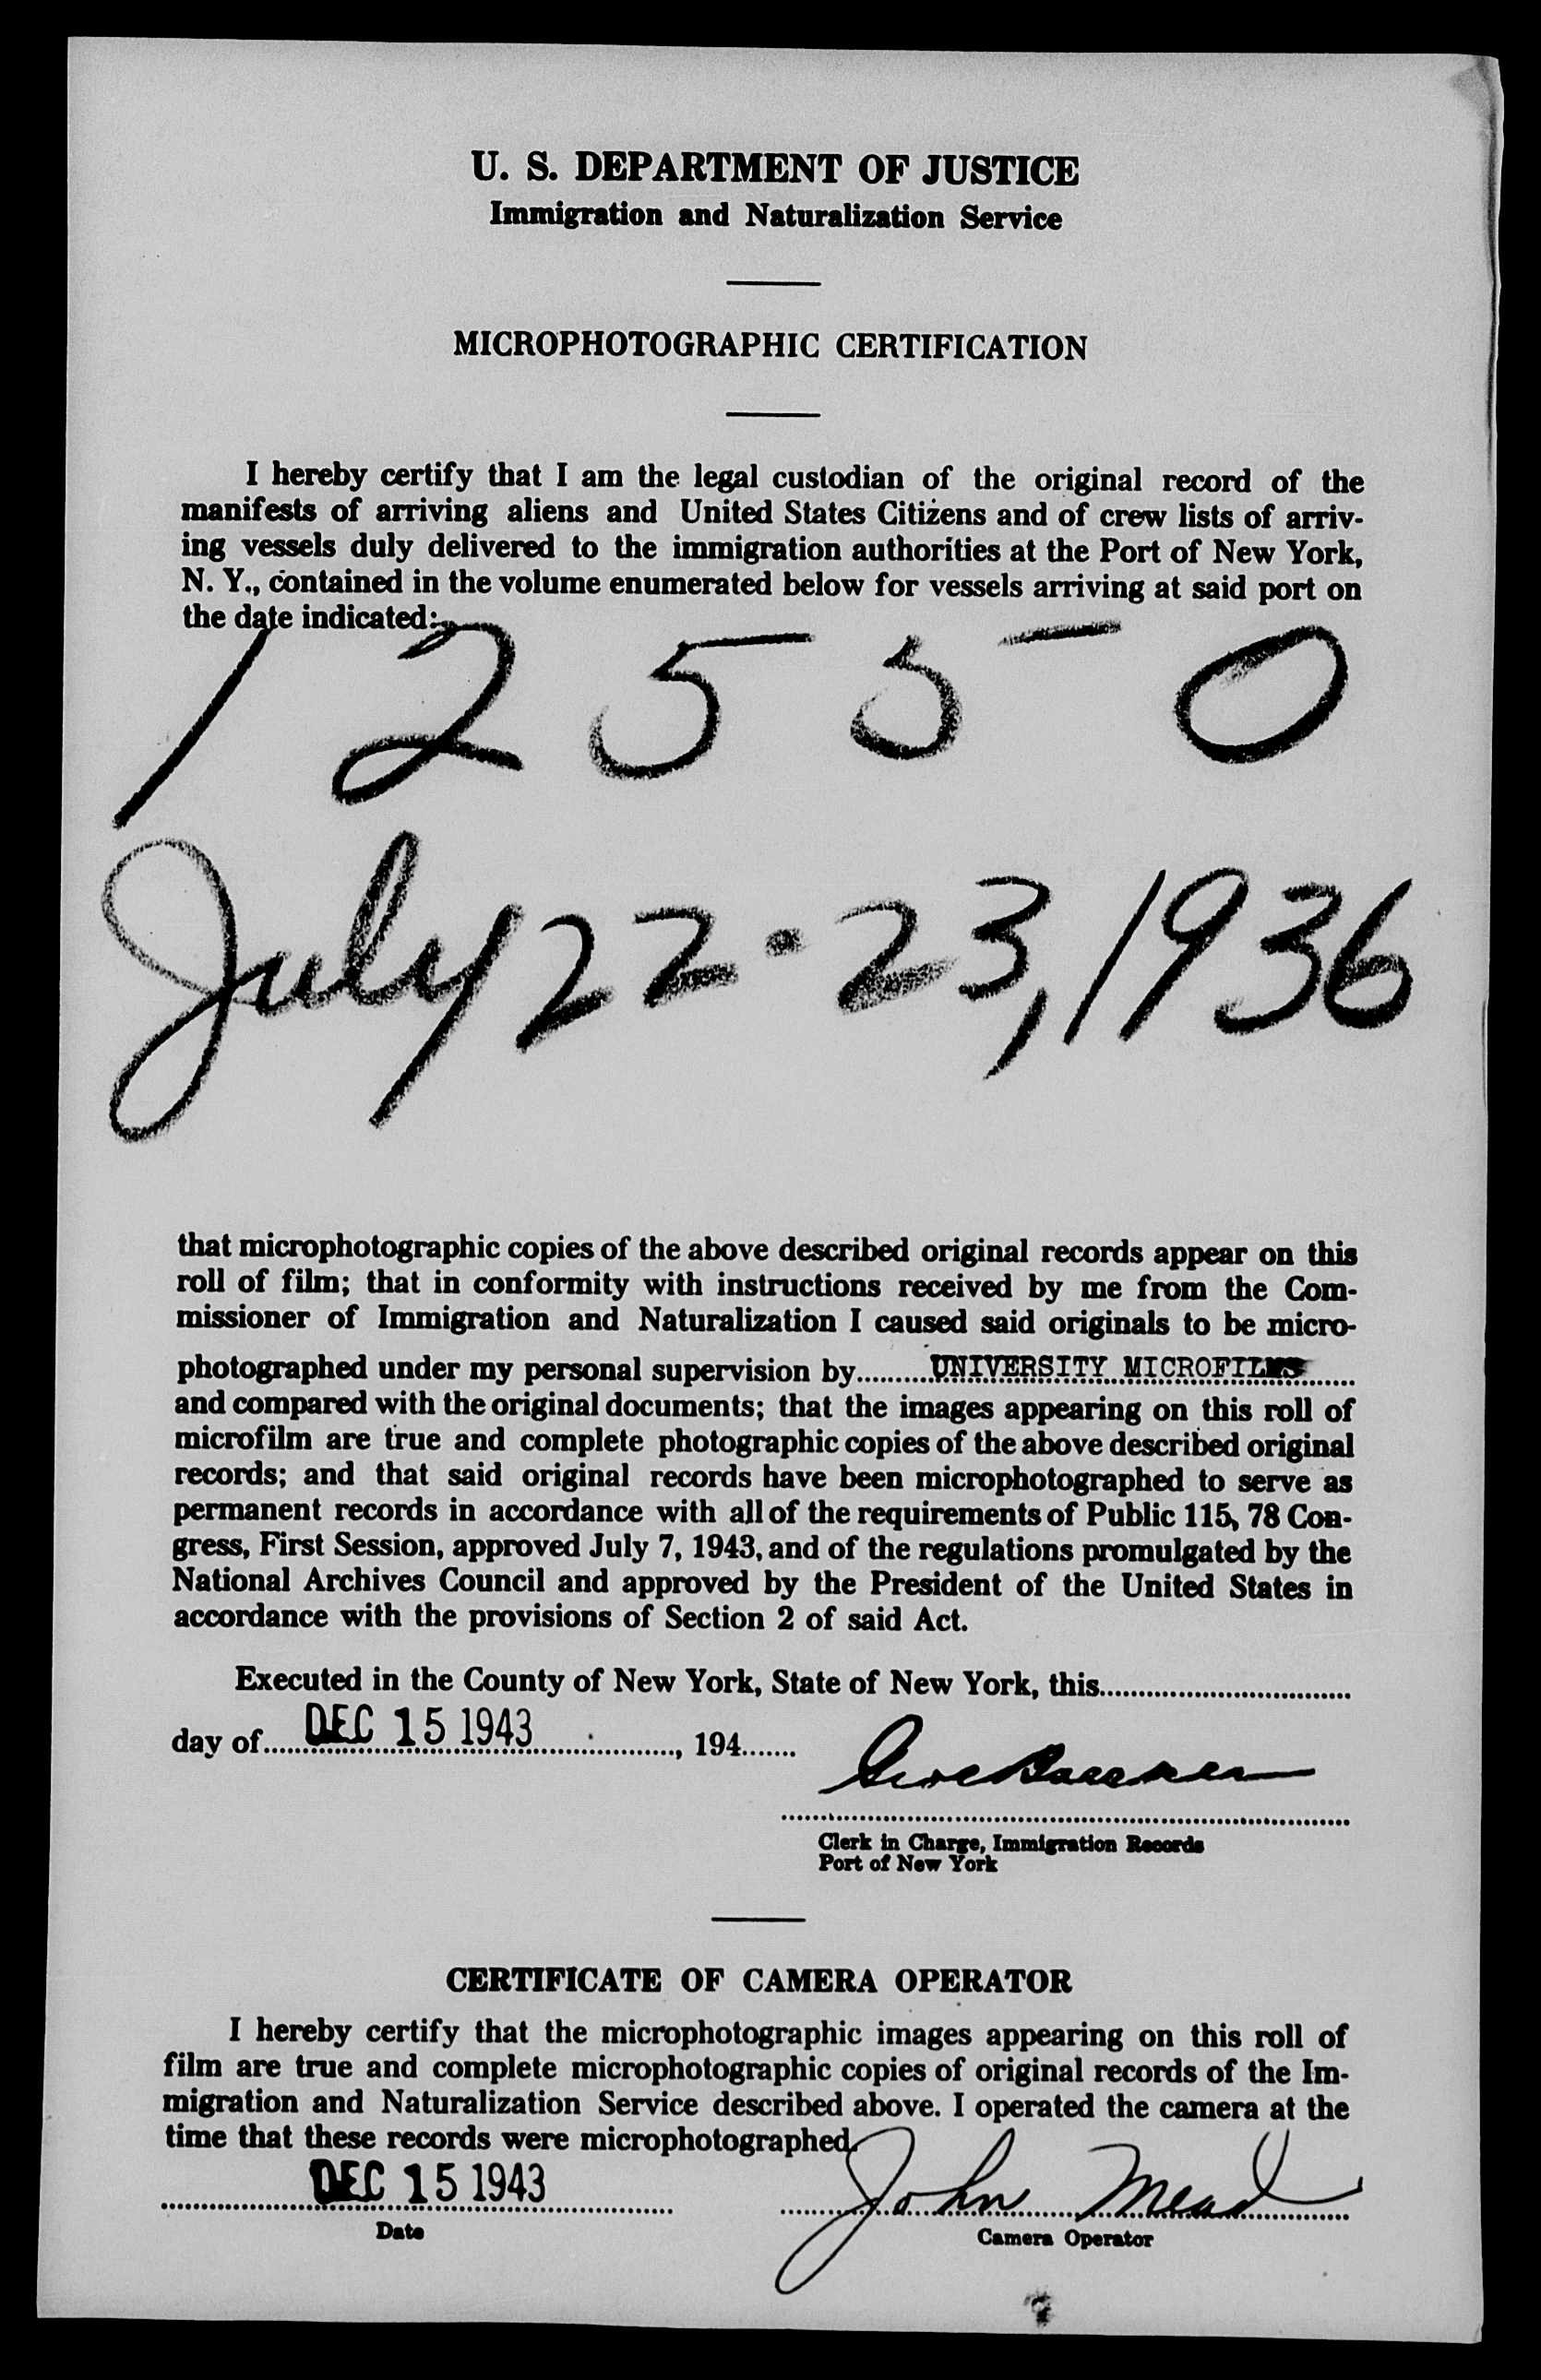 U. S. DEPARTMENT OF JUSTICE
Immigration and Naturalization Service
MICROPHOTOGRAPHIC CERTIFICATION
I hereby certify that I am the legal custodian of the original record of the
manifests of arriving aliens and United States Citizens and of crew lists of arriv-
ing vessels duly delivered to the immigration authorities at the Port of New York,
N. Y., contained in the volume enumerated below for vessels arriving at said port on
the date indicated:
1 2 5 5 0
July 22-23, 1936
that microphotographic copies of the above described original records appear on this
roll of film; that in conformity with instructions received by me from the Com-
missioner of Immigration and Naturalization I caused said originals to be micro-
photographed under my personal supervision by UNIVERSITY MICROFILMS
and compared with the original documents; that the images appearing on this roll of
microfilm are true and complete photographic copies of the above described original
records; and that said original records have been microphotographed to serve as
permanent records in accordance with all of the requirements of Public 115, 78 Con-
gress, First Session, approved July 7, 1943, and of the regulations promulgated by the
National Archives Council and approved by the President of the United States in
accordance with the provisions of Section 2 of said Act.
Executed in the County of New York, State of New York, this
day of DEC 15 1943, 194
Clerk in Charge, Immigration Records
Port of New York
CERTIFICATE OF CAMERA OPERATOR
I hereby certify that the microphotographic images appearing on this roll of
film are true and complete microphotographic copies of original records of the Im-
migration and Naturalization Service described above. I operated the camera at the
time that these records were microphotographed.
DEC 15 1943 John Mead
Date Camera Operator